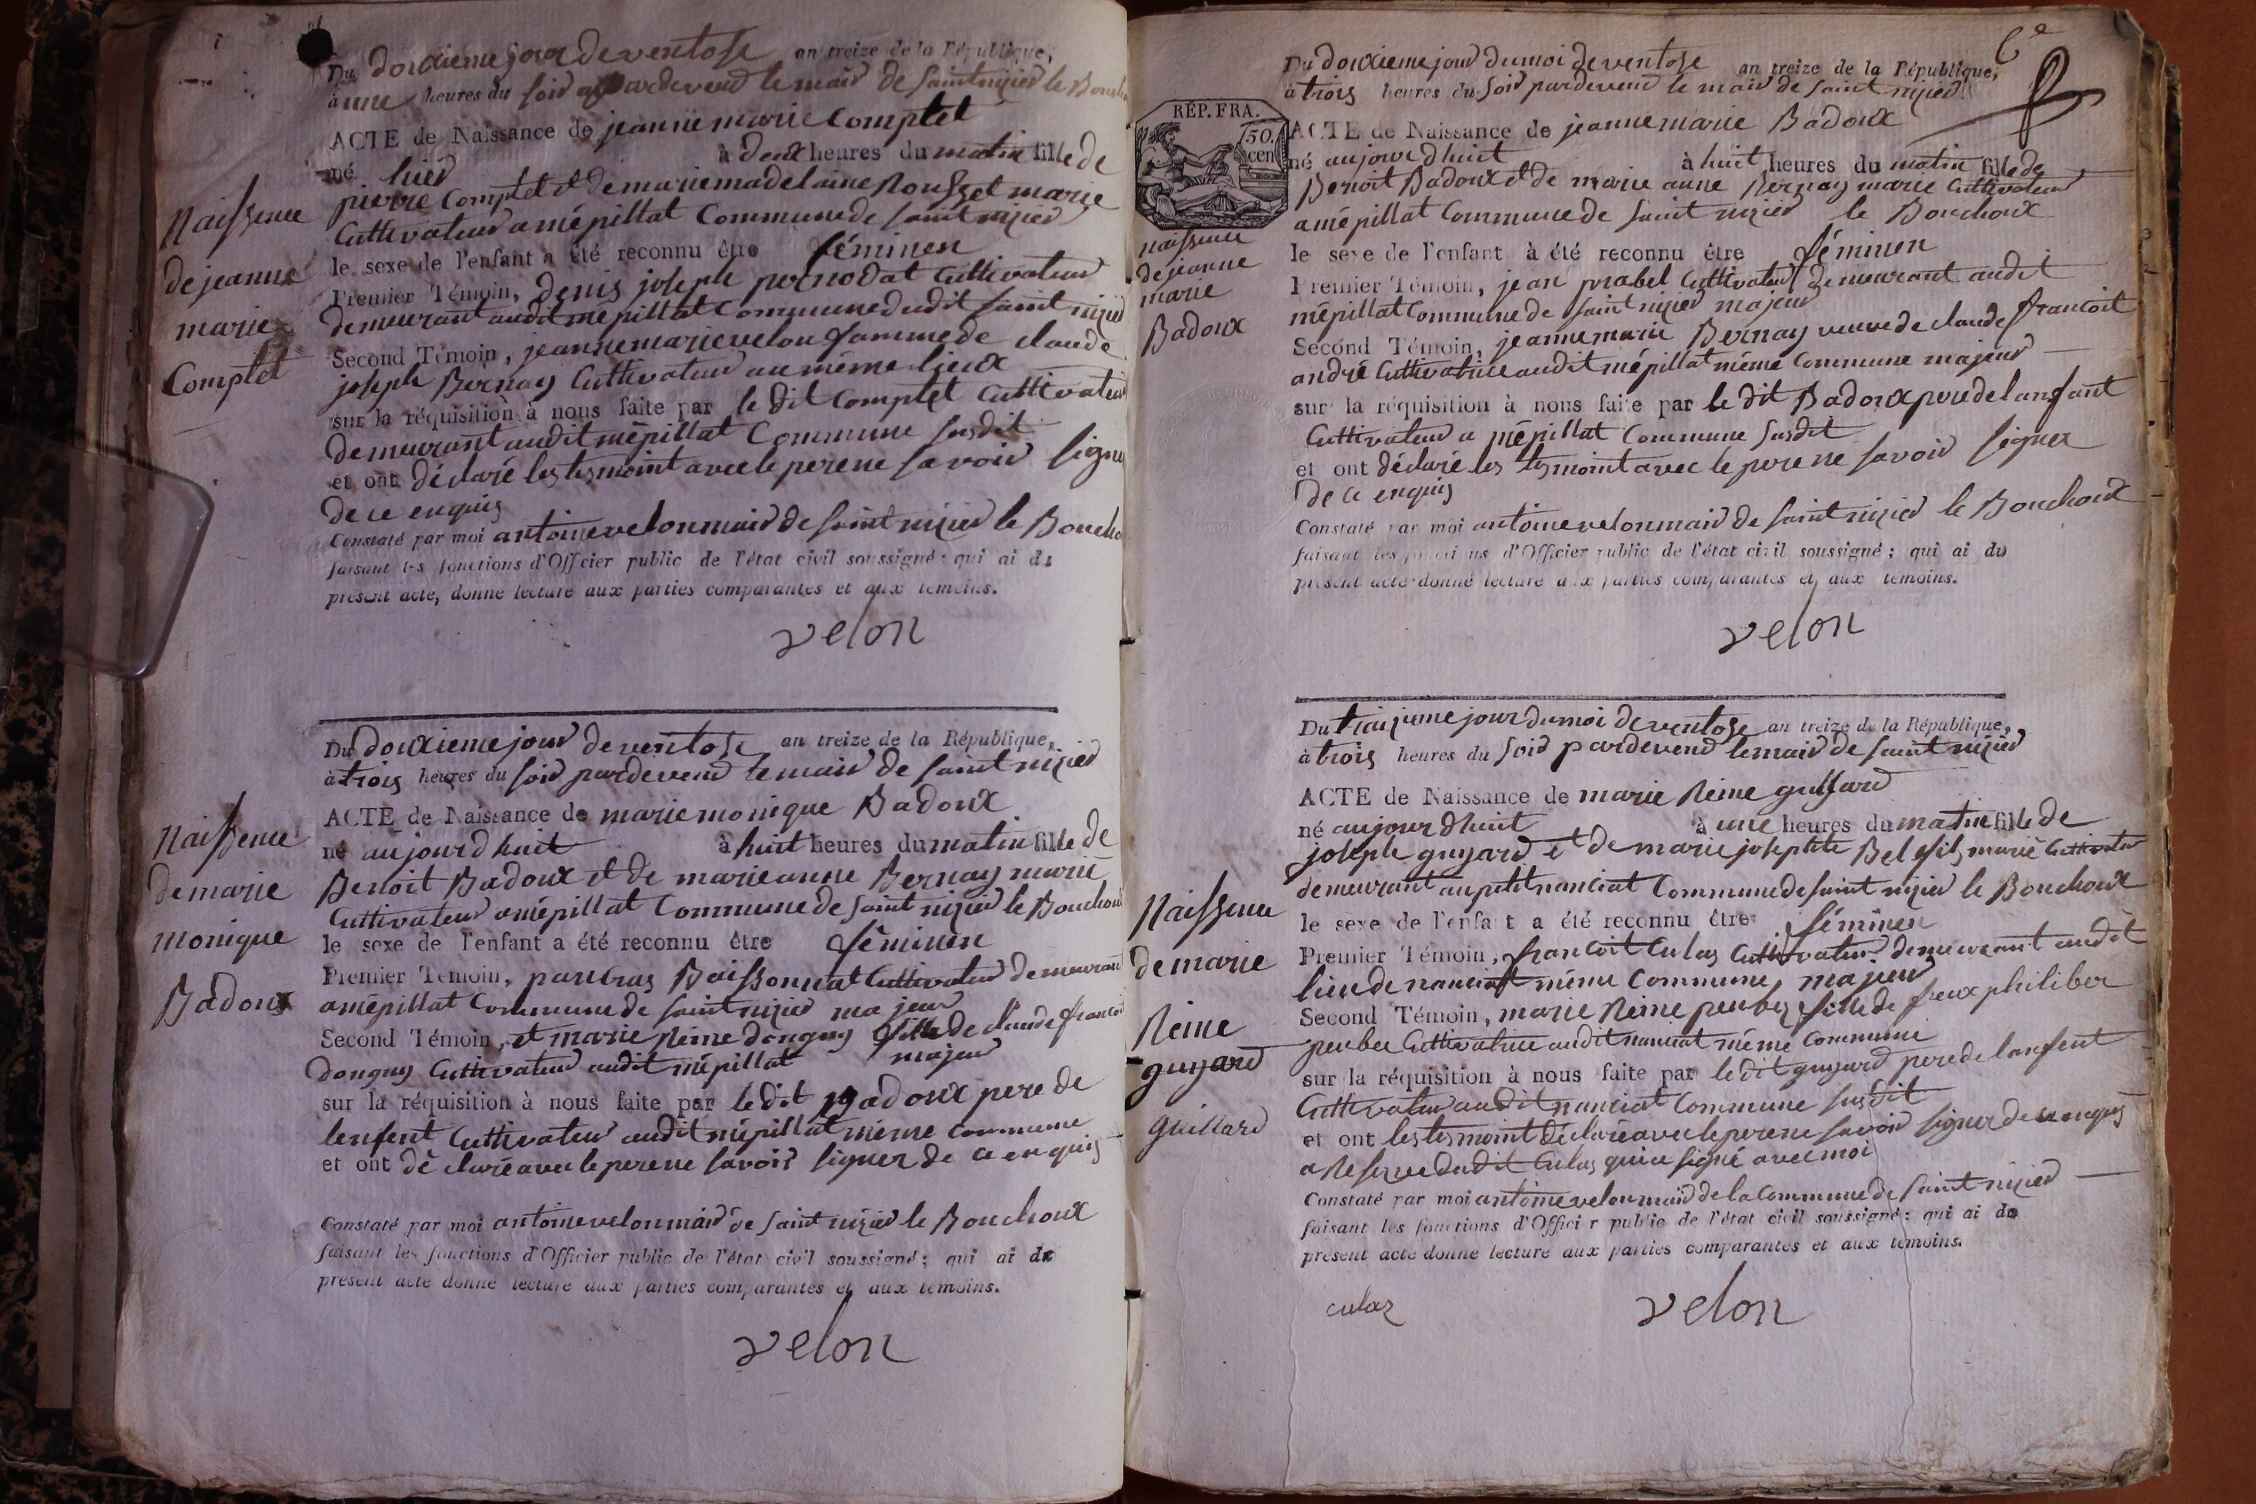 Du douxieme jour de ventose an treize de la République,
à une heures du soir pardevend le maid de saint nizied le Bouch
ACTE de Naissance de jeanne marie Complet
né hied à deux heures du matin fille de
pierre Complet et de marie madelaine Rousset marie
Cultivateur a mépillat Commune de saint nizied
le sexe de l'enfant a été reconnu être féminen
Premier Témoin, denis joseph pernodat Cultivateur
demeurant audit mépillat Commune dudit saint nizied
Second Témoin, jeanne marie velon famme de claude
joseph Bernay Cultivateur au même lieux
sur la réquisition à nous faite par le dit Complet Cultivateur
demeurant audit mépillat Commune susdit
et ont déclaré les tesmoint avec le pere ne savoir signe
de ce enquis
Constaté par moi antoine velon maid de saint nizied le Boucho
faisant les fonctions d'Officier public de l'état civil soussigné; qui ai du
présent acte, donné lecture aux parties comparantes et aux témoins.
velon
Naissence
de jeanne
marie
Complet
Du douxieme jour de ventose an treize de la République,
à trois heures du soir pardevend le maid de saint nizied
ACTE de Naissance de marie monique Badoux
né aujourdhuit à huit heures du matin fille de
Benoit Badoux et de marie anne Bernay marié
Cultivateur a mépillat Commune de saint nizied le Bouchoux
le sexe de l'enfant a été reconnu être féminen
Premier Témoin, pancras Boissonnat Cultivateur demeurant
a mépillat Commune de saint nizied majeur
Second Témoin, et marie Reine donguy fille de claude francoi
donguy Cultivateur audit mépillat majeur
sur la réquisition à nous faite par le dit Badoux pere de
lenfent Cultivateur audit mépillat même commune
et ont déclaré avec le pere ne savoir signer de ce enquis
Constaté par moi antoine velon maid de saint nizied le Bouchoux
faisant les fonctions d'Officier public de l'état civil soussigné; qui ai du
présent acte donné lecture aux parties comparantes et aux témoins.
velon
Naissence
de marie
monique
Badoux
Du douxieme jour du moi de ventose an treize de la République,
à trois heures du soir pardevend le maid de saint nizied
RÉP. FRA.
50.
cen
ACTE de Naissance de jeanne marie Badoux
né aujourdhuit à huit heures du matin fille de
Benoit Badoux et de marie anne Bernay marié Cultivateur
a mépillat Commune de saint nizied le Bouchoux
le sexe de l'enfant à été reconnu être féminen
Premier Témoin, jean prabel Cultivateur demeurant audit
mépillat Commune de saint nizied majeur
Second Témoin, jeanne marie Bernay veuve de claude francoit
andré Cultivatrice audit mépillat même Commune majeur
sur la réquisition à nous faite par le dit Badoux pere de lanfant
Cultivateur a mépillat Commune susdit
et ont déclaré les tesmoint avec le pere ne savoir signer
de ce enquis
Constaté par moi antoine velon maid de saint nizied le Bouchoux
faisant les fonctions d'Officier public de l'état civil soussigné; qui ai du
présent acte donné lecture aux parties comparantes et aux témoins.
velon
naissence
de jeanne
marie
Badoux
Du traizieme jour du moi de ventose an treize de la République,
à trois heures du soir pardevend le maid de saint nizied
ACTE de Naissance de marie Reine guyard
né aujourdhuit à une heures du matin fille de
joseph guyard et de marie josephte Belesils marié Cultivateur
demeurant au petit nanciat Commune de saint nizied le Bouchoux
le sexe de l'enfant a été reconnu être féminen
Premier Témoin, francoit Culas Cultivateur demeurant audit
lieu de nanciat même Commune majeur
Second Témoin, marie Reine peubez fille de feux philiber
peubee Cultivatrice audit nanciat même Commune
sur la réquisition à nous faite par le dit guyard pere de lanfent
Cultivateur audit nanciat Commune susdit
et ont les tesmoint déclaré avec le pere ne savoir signer de ce enquis
a Reserve dudit Culas qui a signé avec moi
Constaté par moi antoine velon maid de la Commune de saint nizied
faisant les fonctions d'Officier public de l'état civil soussigné; qui ai du
présent acte donné lecture aux parties comparantes et aux témoins.
culaz velon
Naissence
de marie
Reine
guyard
guillard